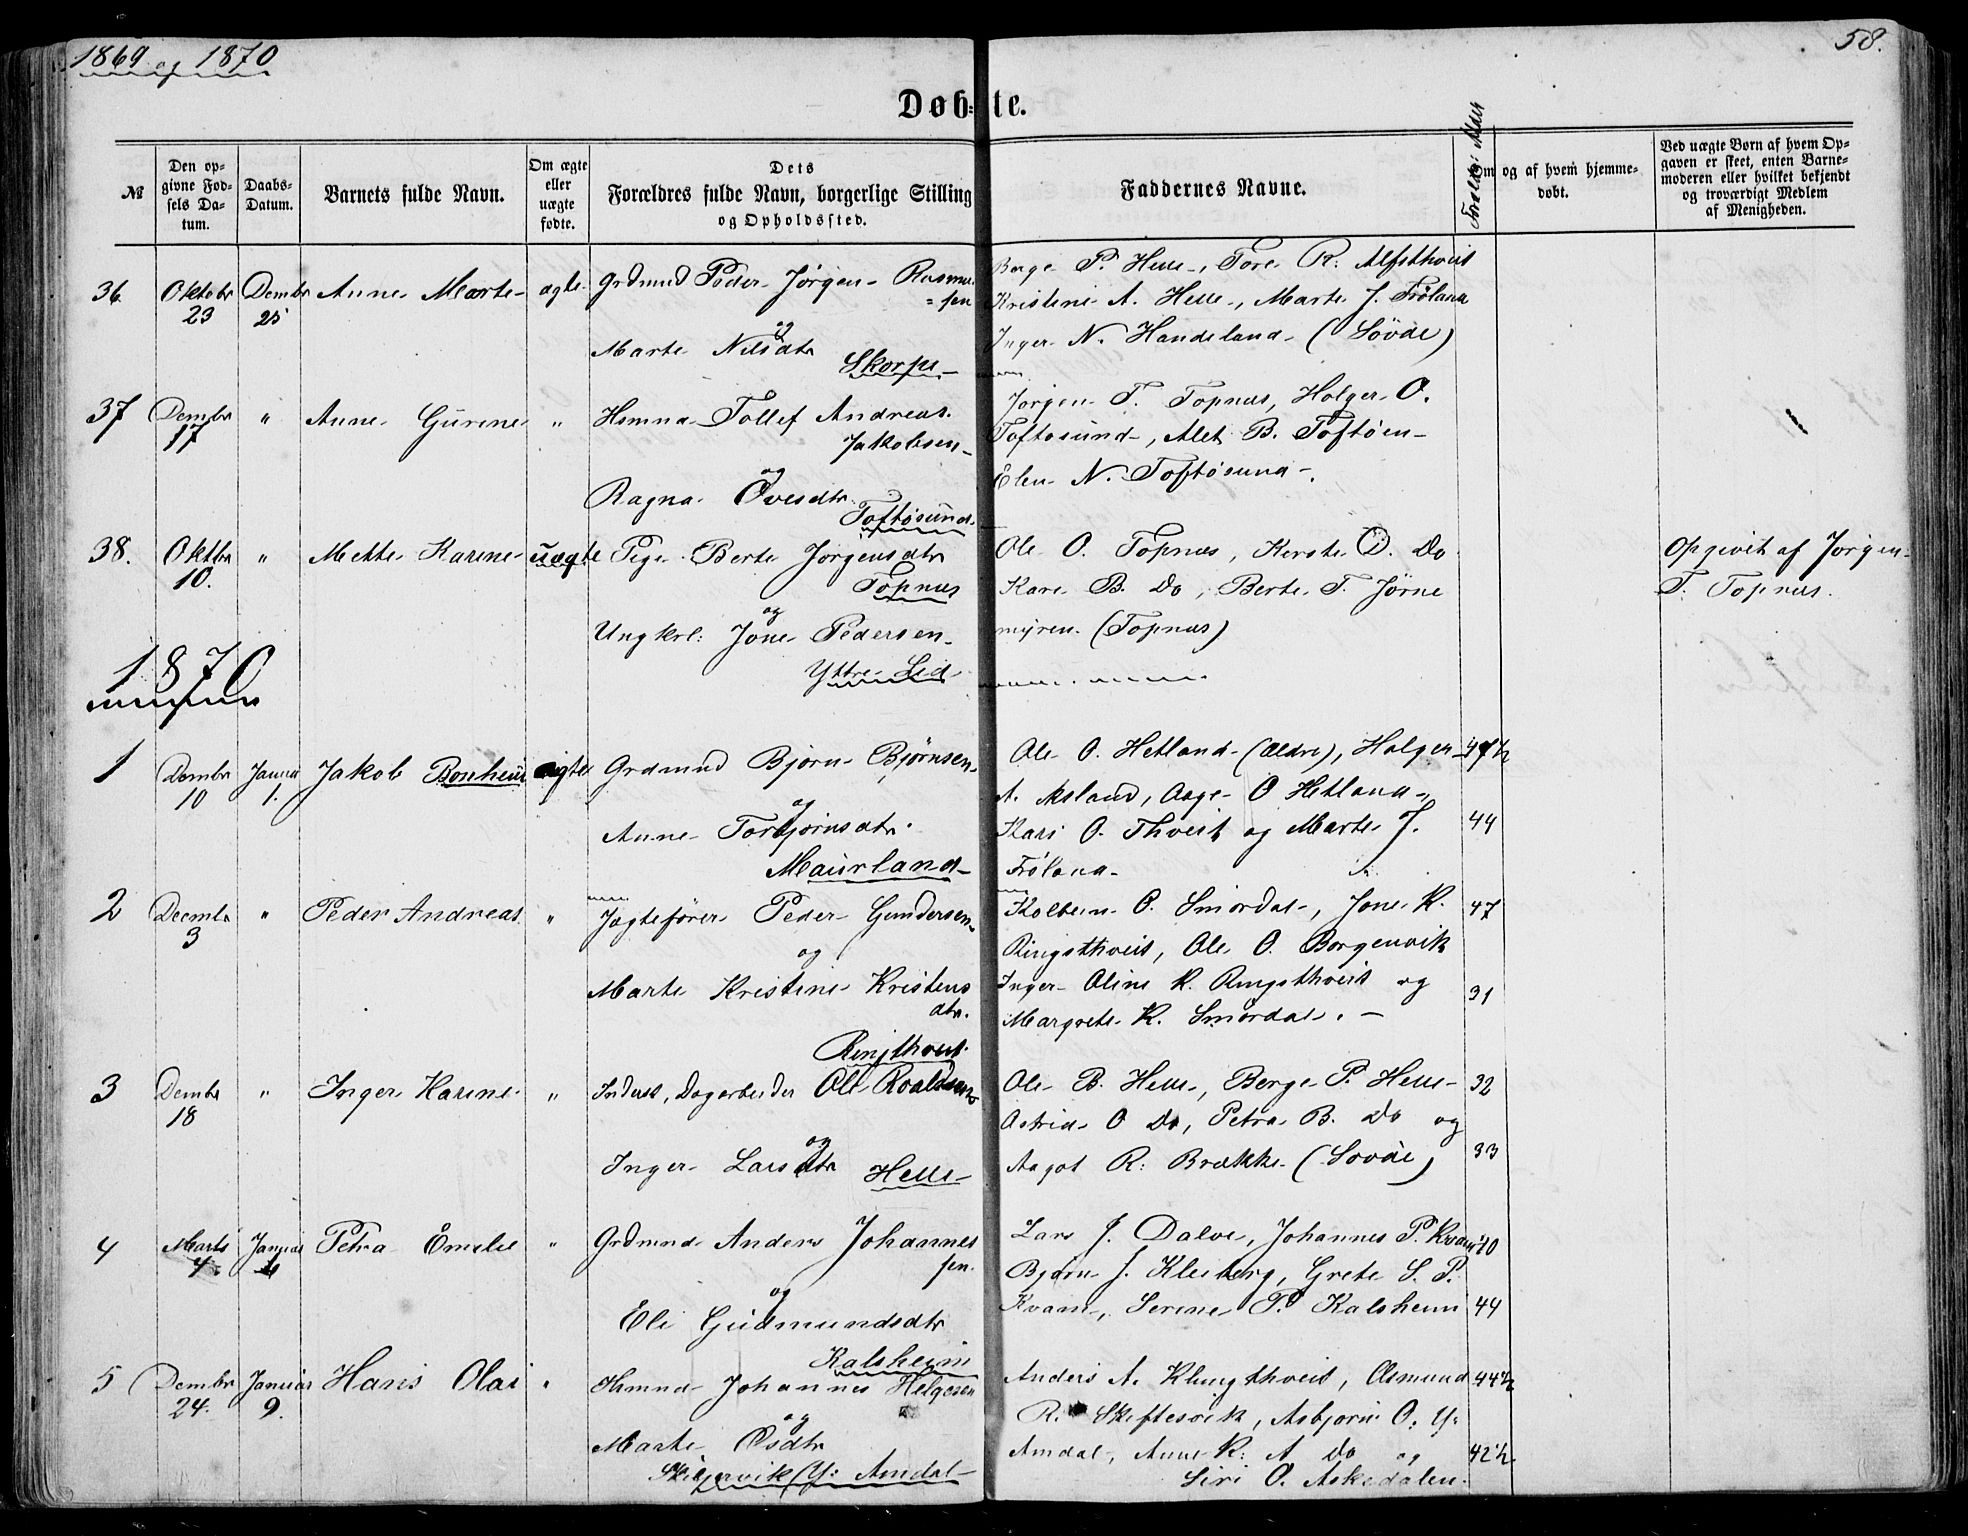 1869 og 1870
58.
Døb-te.
№
Den opgivne Fødsels Datum.
Daabs-Datum.
Barnets fulde Navn.
Om ægte eller uægte fødte.
Dets Forældres fulde Navn, borgerlige Stilling og Opholdssted.
Faddernes Navne.
Forældr: Alder
Om og af hvem hjemmedøbt.
Ved uægte Børn af hvem Opgaven er skeet, enten Barnemoderen eller hvilket bekjendt og troværdigt Medlem af Menigheden.
36. Oktobr 23 Dembr 25 Anne Marte ægte Grdmnd Peder Jørgen Rasmus=sen
og
Marte Nilsdtr
Skorpe
Berge P. Helle, Tore R. Alfsthveit
Kristine A. Helle, Marte J. Frøland
Inger N. Handeland (Søvde)
37 Dembr 17 " Anne Gurine " Hsmnd Tollef Andreas Jakobsen
og
Ragna Ovesdtr
Toftøsund
Jørgen T. Topnæs, Holger O.
Toftøsund, Alet B. Toftøen
Elen N. Toftøsund.
38. Oktbr 10. " Mette Karine uægte Pige Berte Jørgensdtr
Topnæs
og
Ungkrl: Jone Pedersen
Yttre Lid
Ole O. Topnæs, Kirste D. Do
Kare B. Do, Berte T. Jørne
myren. (Topnæs)
Opgivet af Jørgen
T. Topnæs.
1870
1 Dembr 10 Januar 1. Jakob Bonheui ægte Grdmnd Bjørn Bjørnsen
og
Anne Torbjørnsdtr.
Maurland
Ole O. Hetland (Ældre), Holger
A. Asland, Aage O Hetland,
Kari O. Thveit og Marte J.
Frøland
47½
44
2 Decmbr 3 " Peder Andreas " Jagtefører Peder Gundersen
og
Marte Kristine Kristens
dtr.
Ringthveit
Kolbein O. Smørdal, Jone K.
Ringsthveit, Ole O. Borgenvik
Inger Oline K. Ringsthveit og
Margrete K. Smørdal.
47
31
3 Dembr 18 " Inger Karine " Inderst, Dagarbeider Ole Roaldsen
og
Inger Larsdtr Helle
Ole B. Helle, Berge P. Helle
Astrid O Do, Petra B. Do og
Aagot R: Brække (Sovde)
32
33
4 Marts 4 Januar 6 Petra Emelie " Grdmnd Anders Johannes
sen.
og
Eli Gudmundsdtr
Kalsheim
Lars J. Dalve, Johannes P. Kvam
Bjørn J. Kleiberg, Grete S. P.
Kvam, Serine P. Kalsheim
40
44
5 Dembr 24. Januar 9. Hans Olai " Hsmnd Johannes Helgesen
og
Marte Osdtr
Skigervik (Y: Amdal
Anders A. Klungthveit, Asmund
R. Skeftesvik, Asbjørn O. Y:
Amdal, Anne K: A Do og
Siri O. Askedalen.
44½
42½